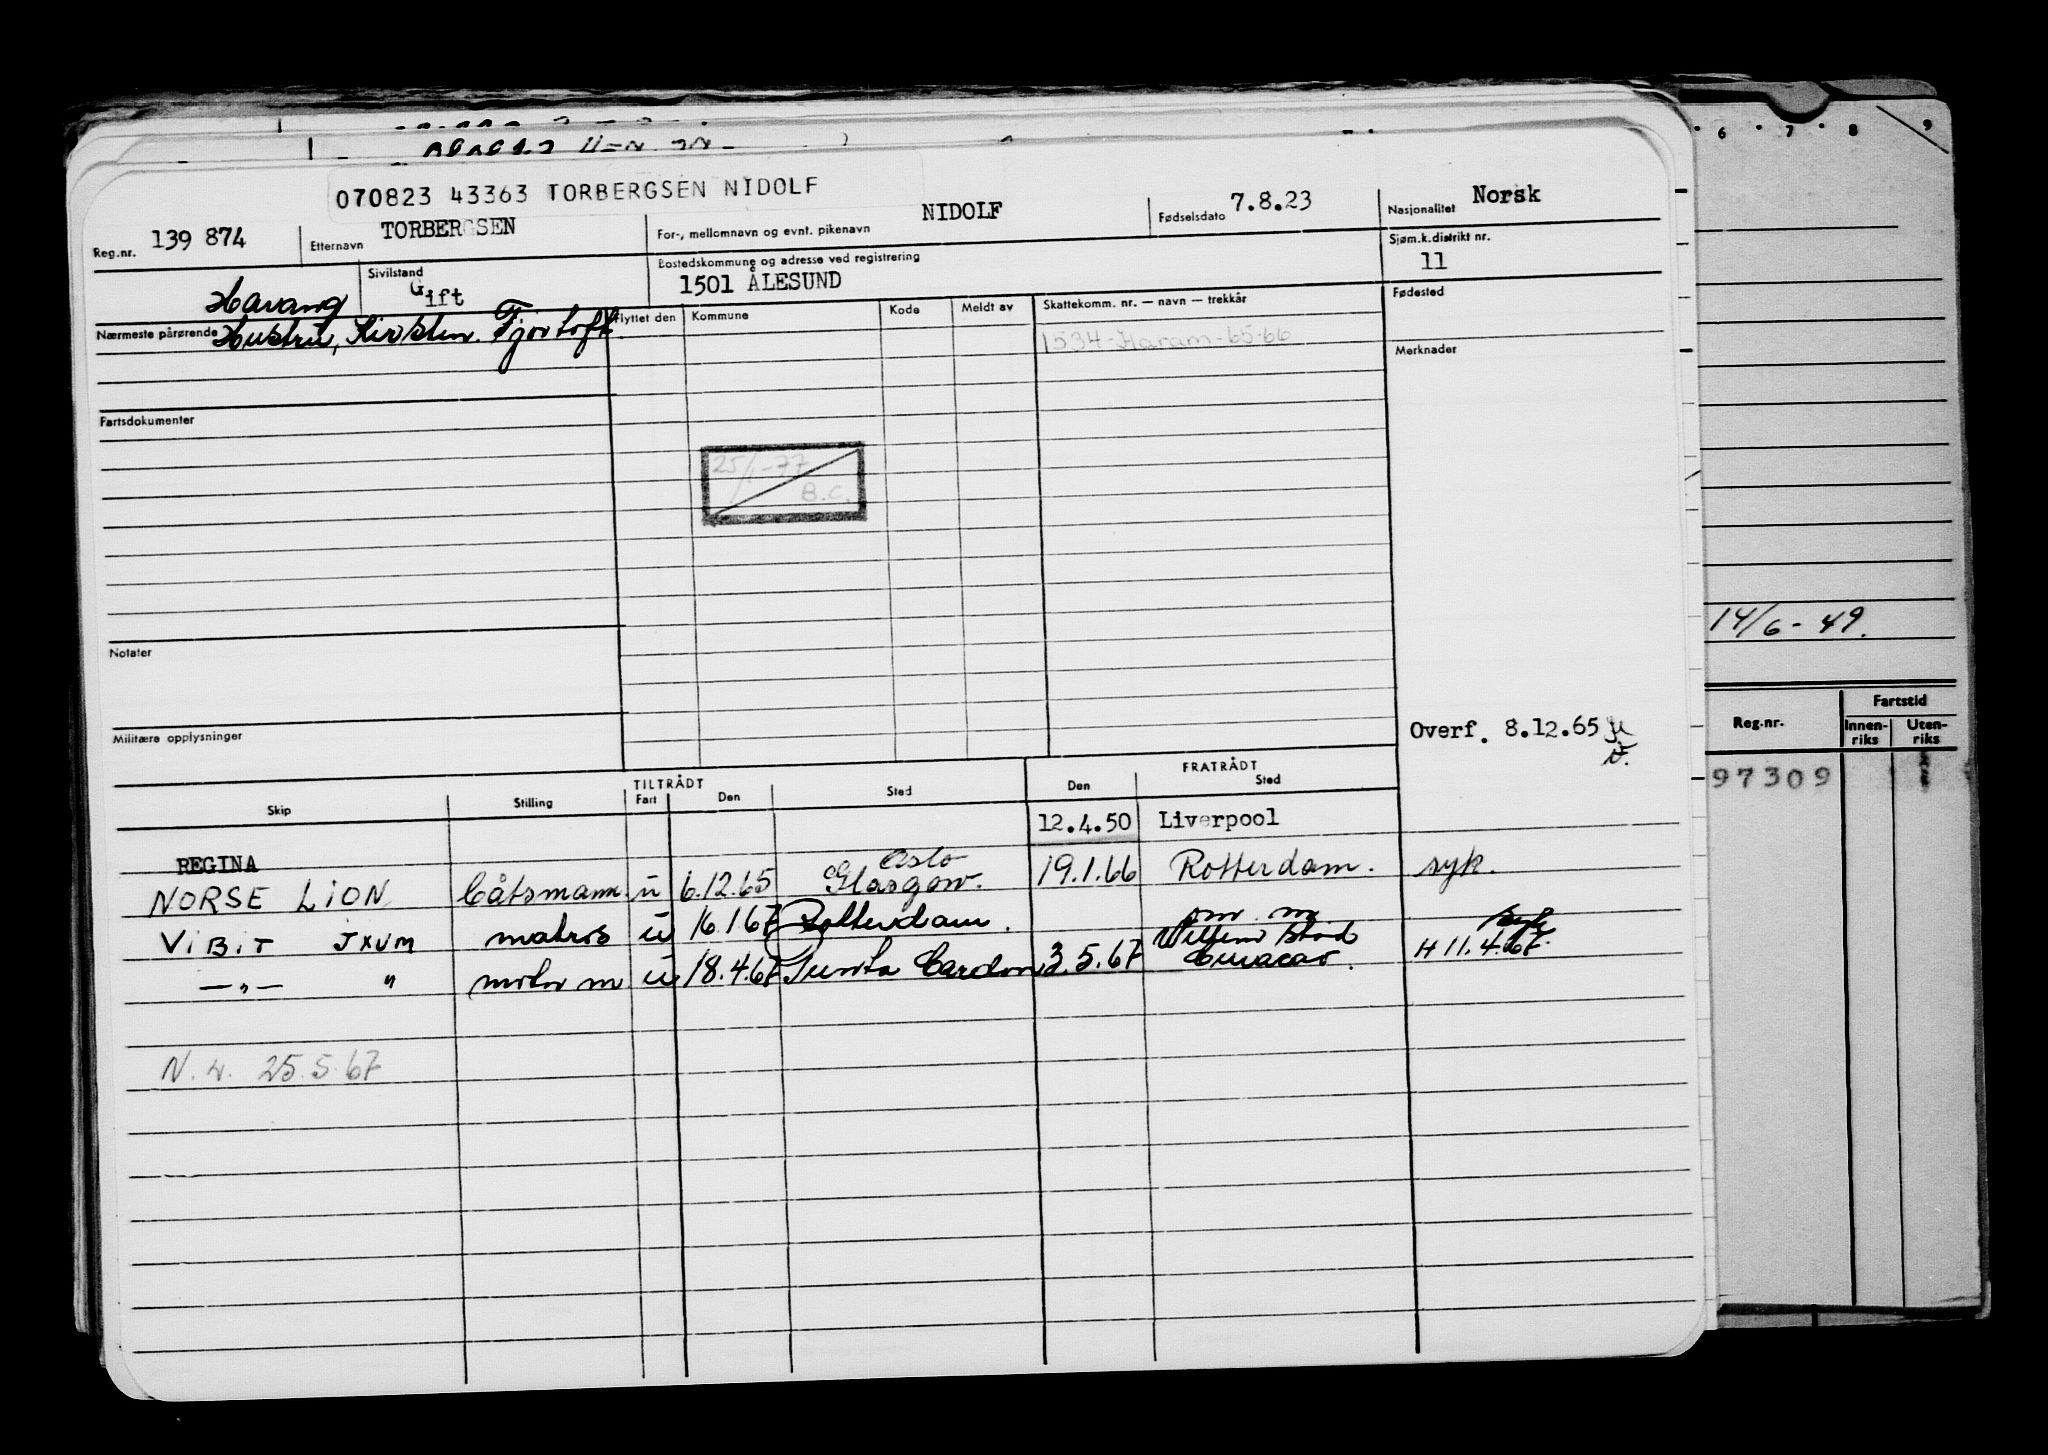 6 . 7 . 8 9
070823 43363 TORBERGSEN NIDOLF
Reg.nr. 139 874 Etternavn TORBERGSEN For-, mellomnavn og evnt. pikenavn NIDOLF Fødselsdato 7.8.23 Nasjonalitet Norsk
Sivilstand Gift Bostedskommune og adresse ved registrering 1501 ÅLESUND Sjøm.k.distrikt nr. 11
Nærmeste pårørende Hustru, Kirsten. Fjørtoft.
Flyttet den Kommune Kode Meldt av Skattekomm. nr. — navn — trekkår Fødested
1534-Haram-65-66
Merknader
Fartsdokumenter
25/1-77
B.C.
Notater
Militære opplysninger
Overf. 8.12.65
TILTRÅDT FRATRÅDT
Skip Stilling Fart Den Sted Den Sted
12.4.50 Liverpool
REGINA Oslo
NORSE LION båtsmann u 6.12.65 Glasgow. 19.1.66 Rotterdam. syk.
VIBIT JXUM matros u 16.1.67 Rotterdam. H 11.4.67.
—„— " motor m u 18.4.67 3.5.67 Willemstad Curacao.
N. 4. 25.5.67
14/6- 49.
Reg.nr. Fartstid
Innen-riks Uten-riks
97309